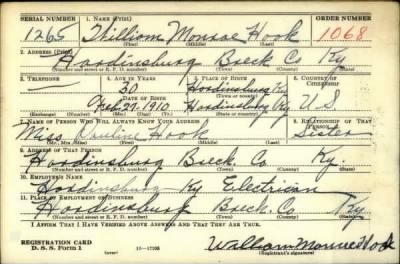 SERIAL NUMBER 1. NAME (Print) ORDER NUMBER
1265 William Monroe Hook 1068
(First) (Middle) (Last)
2. ADDRESS (Print)
Hardinsburg Breck Co Ky
(Number and street or R. F. D. number) (Town) (County) (State)
3. TELEPHONE 4. AGE IN YEARS 5. PLACE OF BIRTH 6. COUNTRY OF CITIZENSHIP
30 Hardinsburg Ky
DATE OF BIRTH (Town or county)
Feb 27, 1910 Hardinsburg Ky U S
(Exchange) (Number) (Mo.) (Day) (Yr.) (State or country)
7. NAME OF PERSON WHO WILL ALWAYS KNOW YOUR ADDRESS 8. RELATIONSHIP OF THAT PERSON
Miss Pauline Hook Sister
(Mr., Mrs., Miss) (First) (Middle) (Last)
9. ADDRESS OF THAT PERSON
Hardinsburg Breck. Co. Ky.
(Number and street or R. F. D. number) (Town) (County) (State)
10. EMPLOYER'S NAME
Hardinsburg Ky Electrician
11. PLACE OF EMPLOYMENT OR BUSINESS
Hardinsburg Breck. Co. Ky
(Number and street or R. F. D. number) (Town) (County) (State)
I AFFIRM THAT I HAVE VERIFIED ABOVE ANSWERS AND THAT THEY ARE TRUE.
REGISTRATION CARD
D. S. S. Form 1 (over) William Monroe Hook
(Registrant's signature)